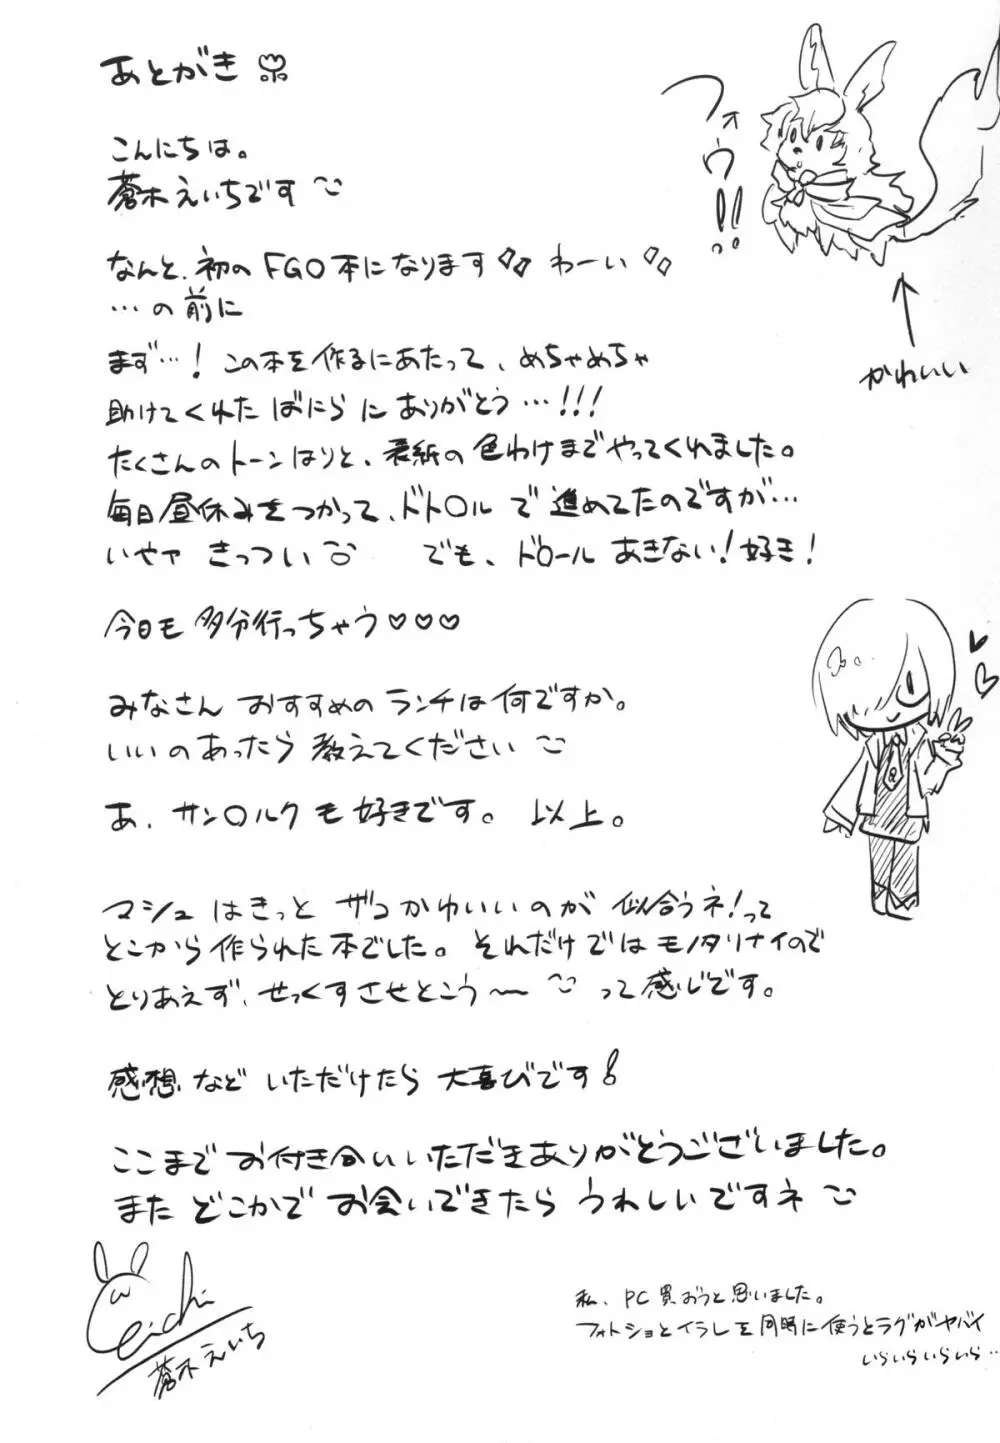 あとがき
こんにちは。
蒼木えいちです
なんと、初のFGO本になります わーい
…の前に
まず…！この本を作るにあたって、めちゃめちゃ
助けてくれた ばにら に ありがとう…!!!
たくさんのトーンはりと、表紙の色わけまでやってくれました。
毎日昼休みをつかって、ドト○ル で 進めてたのですが…
いやァ きっつい でも、ド○ール あきない！好き！
今日も 多分行っちゃう♡♡♡
みなさん おすすめの ランチは何ですか。
いいのあったら 教えてください
あ、サン○ルク も 好きです。 以上。
マシュ は きっと ザコかわいいのが 似合うネ！って
とこから作られた本でした。それだけではモノタリナイので
とりあえず、せっくすさせとこう〜 って感じです。
感想 など いただけたら 大喜びです！
ここまで お付き合いいただきありがとうございました。
また どこかで お会いできたら うれしいですネ
フォウ!!
かわいい
eichi
蒼木えいち
私、PC買おうと思いました。
フォトショとイラレを同時に使うとラグがヤバイ
いらいらいらいら…